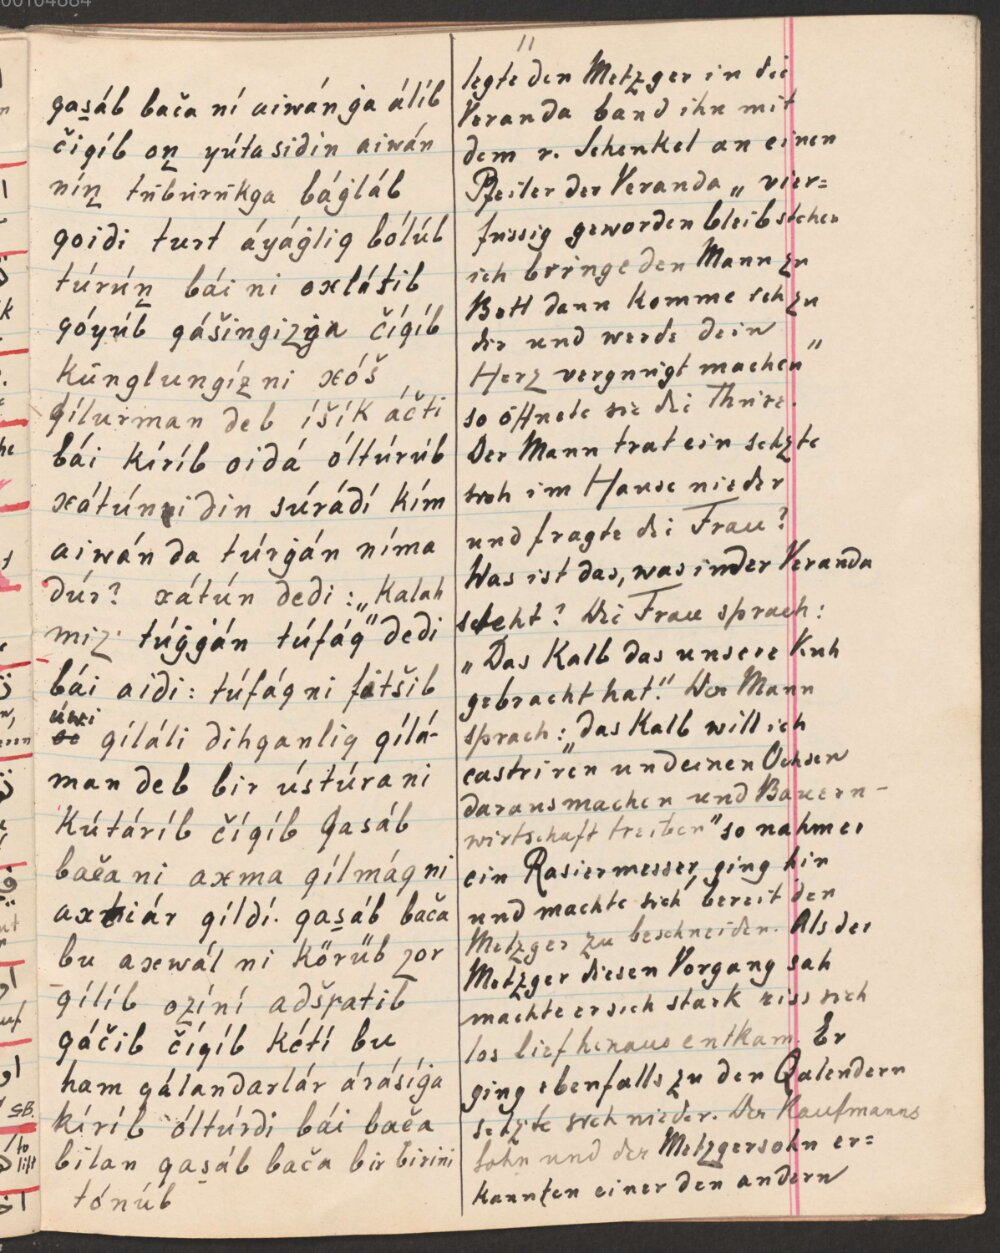 00104884
11
qaṣáb bača ní aiwánga álíb
čiqíb oṉ yúta sidin aiwán
níṉ tüburükga báġláb
qoidi turt áyáġliq bólúb
túrúṉ bái ni oxlátib
qóyúb qášingizga číqíb
künglungíz ni xóš
qílurman deb íšík áčti
bái kíríb oidá óltúrúb
xátúnidin súrádí kím
aiwán da túrġán níma
dúr? xátún dedi: „Kalah
miz túġġán túfáq" dedi
bái aidi: túfáq ni fatšib
úwi
qíláli dihqanliq qílá-
man deb bir ústúra ni
kútáríb číqíb qasáb
bača ni axma qílmáq ni
axtiár qíldí. qaṣáb bača
bu axwál ni körüb zor
qílíb ozíní adšratib
qáčib číqíb kétí bu
ham qálandarlár árásíga
kíríb óltúrdi bái bača
bilan qaṣáb bača bir birini
tónúb
legte den Metzger in die
Veranda band ihn mit
dem r. Schenkel an einen
Pfeiler der Veranda „ vier=
füssig geworden bleib stehen
ich bringe den Mann zu
Bett dann komme ich zu
dir und werde dein
Herz vergnügt machen"
so öffnete sie die Thüre.
Der Mann trat ein setzte
sich im Hause nieder
und fragte die Frau?
Was ist das, was in der Veranda
steht? Die Frau sprach:
„Das Kalb das unsere Kuh
gebracht hat." Der Mann
sprach: „das Kalb will ich
castriren und einen Ochsen
daraus machen und Bauern-
wirtschaft treiben" so nahm er
ein Rasiermesser, ging hin
und machte sich bereit den
Metzger zu beschneiden. Als der
Metzger diesen Vorgang sah
machte er sich stark riss sich
los lief hinaus entkam. Er
ging ebenfalls zu den Qalendern
setzte sich nieder. Der Kaufmanns
sohn und der Metzgersohn er=
kannten einer den andern